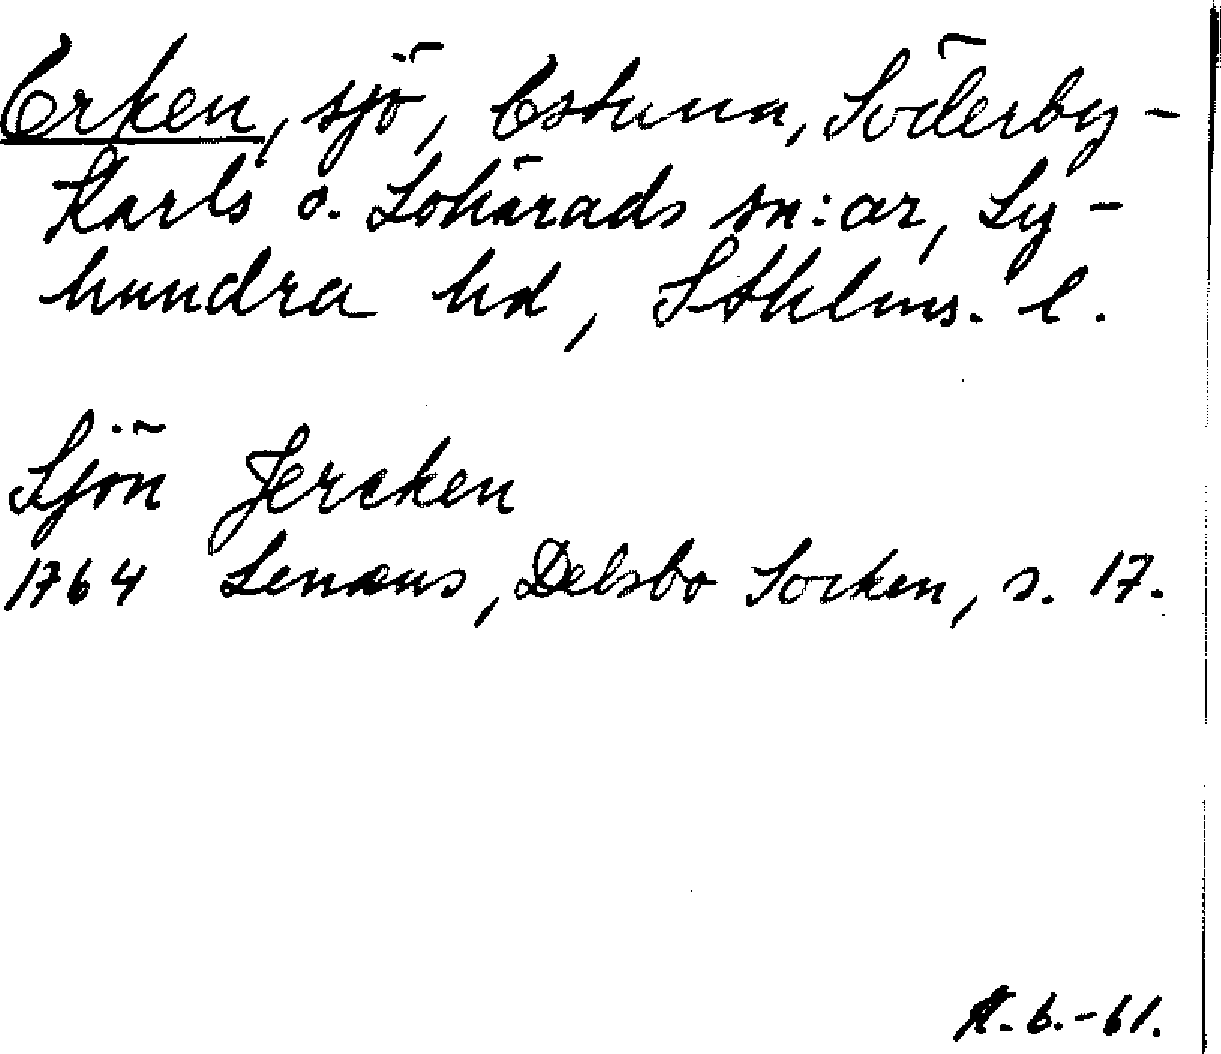 Erken, sjö, Estuna, Söderby-
Karls o. Lohärads sn:ar, Ly-
hundra hd, Sthlms. l.
Sjön Jercken
1764 Lenæus, Delsbo Socken, s. 17.
A. b. -61.